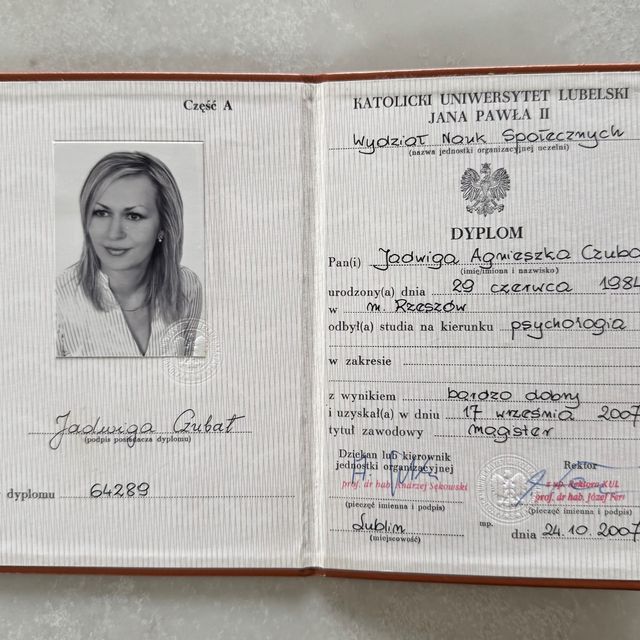 Część A
Jadwiga Czubat
(podpis posiadacza dyplomu)
dyplomu 64289
KATOLICKI UNIWERSYTET LUBELSKI
JANA PAWŁA II
Wydział Nauk Społecznych
(nazwa jednostki organizacyjnej uczelni)
DYPLOM
Pan(i) Jadwiga Agnieszka Czuba
(imię/imiona i nazwisko)
urodzony(a) dnia 29 czerwca 1984
w m. Rzeszów
odbył(a) studia na kierunku psychologia
w zakresie
z wynikiem bardzo dobry
i uzyskał(a) w dniu 17 września 2007
tytuł zawodowy magister
Dziekan lub kierownik
jednostki organizacyjnej
Rektor
prof. dr hab. Andrzej Sękowski
z up. Rektora KUL
prof. dr hab. Józef Fert
(pieczęć imienna i podpis)
(pieczęć imienna i podpis)
Lublin
(miejscowość)
mp.
dnia 24.10.2007